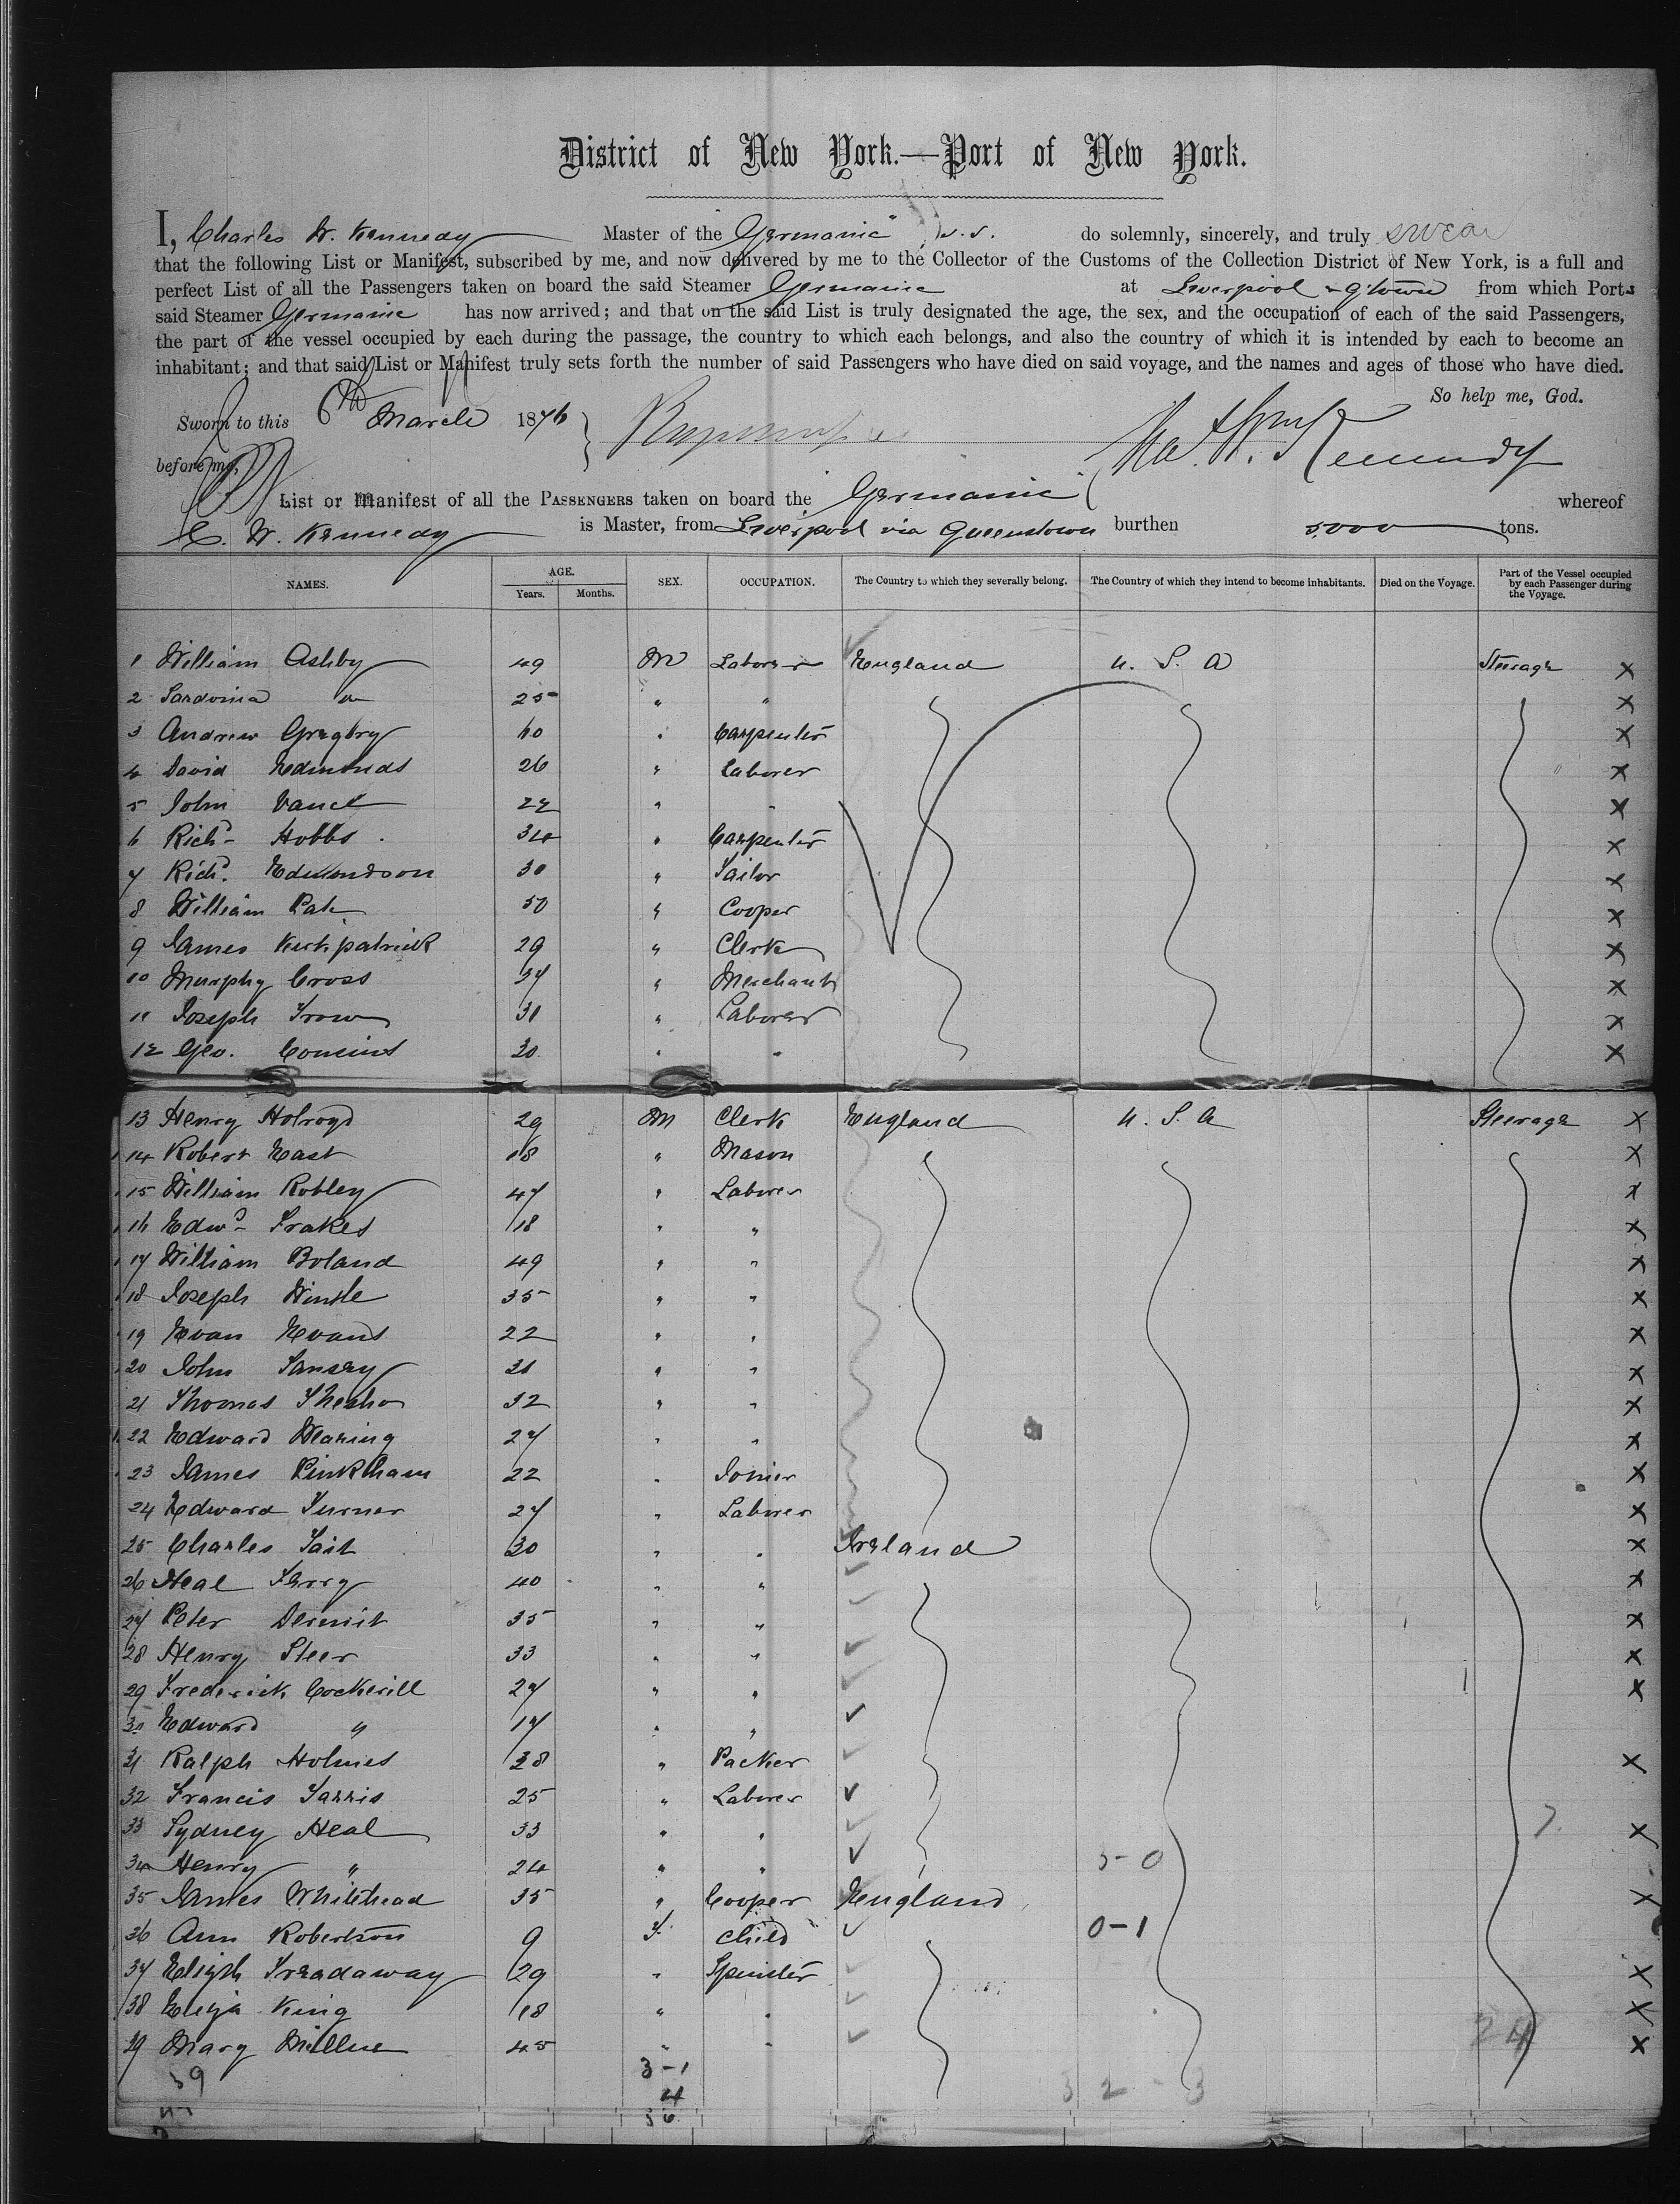 District of New York.—Port of New York.
I, Charles W. Kennedy Master of the "Germanic" s.s. do solemnly, sincerely, and truly swear
that the following List or Manifest, subscribed by me, and now delivered by me to the Collector of the Customs of the Collection District of New York, is a full and
perfect List of all the Passengers taken on board the said Steamer Germanic at Liverpool & Q'town from which Ports
said Steamer Germanic has now arrived; and that on the said List is truly designated the age, the sex, and the occupation of each of the said Passengers,
the part of the vessel occupied by each during the passage, the country to which each belongs, and also the country of which it is intended by each to become an
inhabitant; and that said List or Manifest truly sets forth the number of said Passengers who have died on said voyage, and the names and ages of those who have died.
So help me, God.
Sworn to this 6th March 1876
before me, Kennedy
List or Manifest of all the Passengers taken on board the Germanic whereof
C. W. Kennedy is Master, from Liverpool via Queenstown burthen 5000 tons.
NAMES. AGE. Years. Months. SEX. OCCUPATION. The Country to which they severally belong. The Country of which they intend to become inhabitants. Died on the Voyage. Part of the Vessel occupied by each Passenger during the Voyage.
1 William Ashby 49 M Laborer England U. S. A Steerage X
2 25 " " X
3 Andrew Gregory 60 " Carpenter X
4 David Edmonds 26 " Laborer X
5 John Vance 22 " " X
6 Richd Hobbs 34 " Carpenter X
7 Richd. Edmondson 30 " X
8 William 50 " Cooper X
9 James Kirkpatrick 29 " Clerk X
10 Murphy Cross 37 " Merchant X
11 Joseph Trow 31 " Laborer X
12 Geo. Cousins 30 " " X
13 Henry Holroyd 29 M Clerk England U. S. A Steerage X
14 Robert East 18 " Mason X
15 William Robley 47 " Laborer X
16 Edwd Frakes 18 " " X
17 William Boland 49 " " X
18 Joseph 35 " " X
19 Evan Evans 22 " " X
20 John 31 " " X
21 Thomas 32 " " X
22 Edward Wearing 27 " " X
23 James Pinkham 22 " Joiner X
24 Edward Turner 27 " Laborer X
25 Charles Tait 30 " " Ireland X
26 Neal 40 " " X
27 Peter 35 " " X
28 Henry Steer 33 " " X
29 Frederick Cockerill 27 " " X
30 Edward " 17 " "
31 Ralph Holmes 38 " Packer X
32 Francis 25 " Laborer
33 Sydney Heal 33 " " 7. X
34 Henry " 24 " " 5-0
35 James Whitehead 35 " Cooper England X
36 Ann Robertson 9 F. Child 0-1
37 Elizth Treadaway 29 " Spinster X
38 Eliza King 18 " " X
39 Mary 45 " " 24 X
39 3-1 32-3
4
36